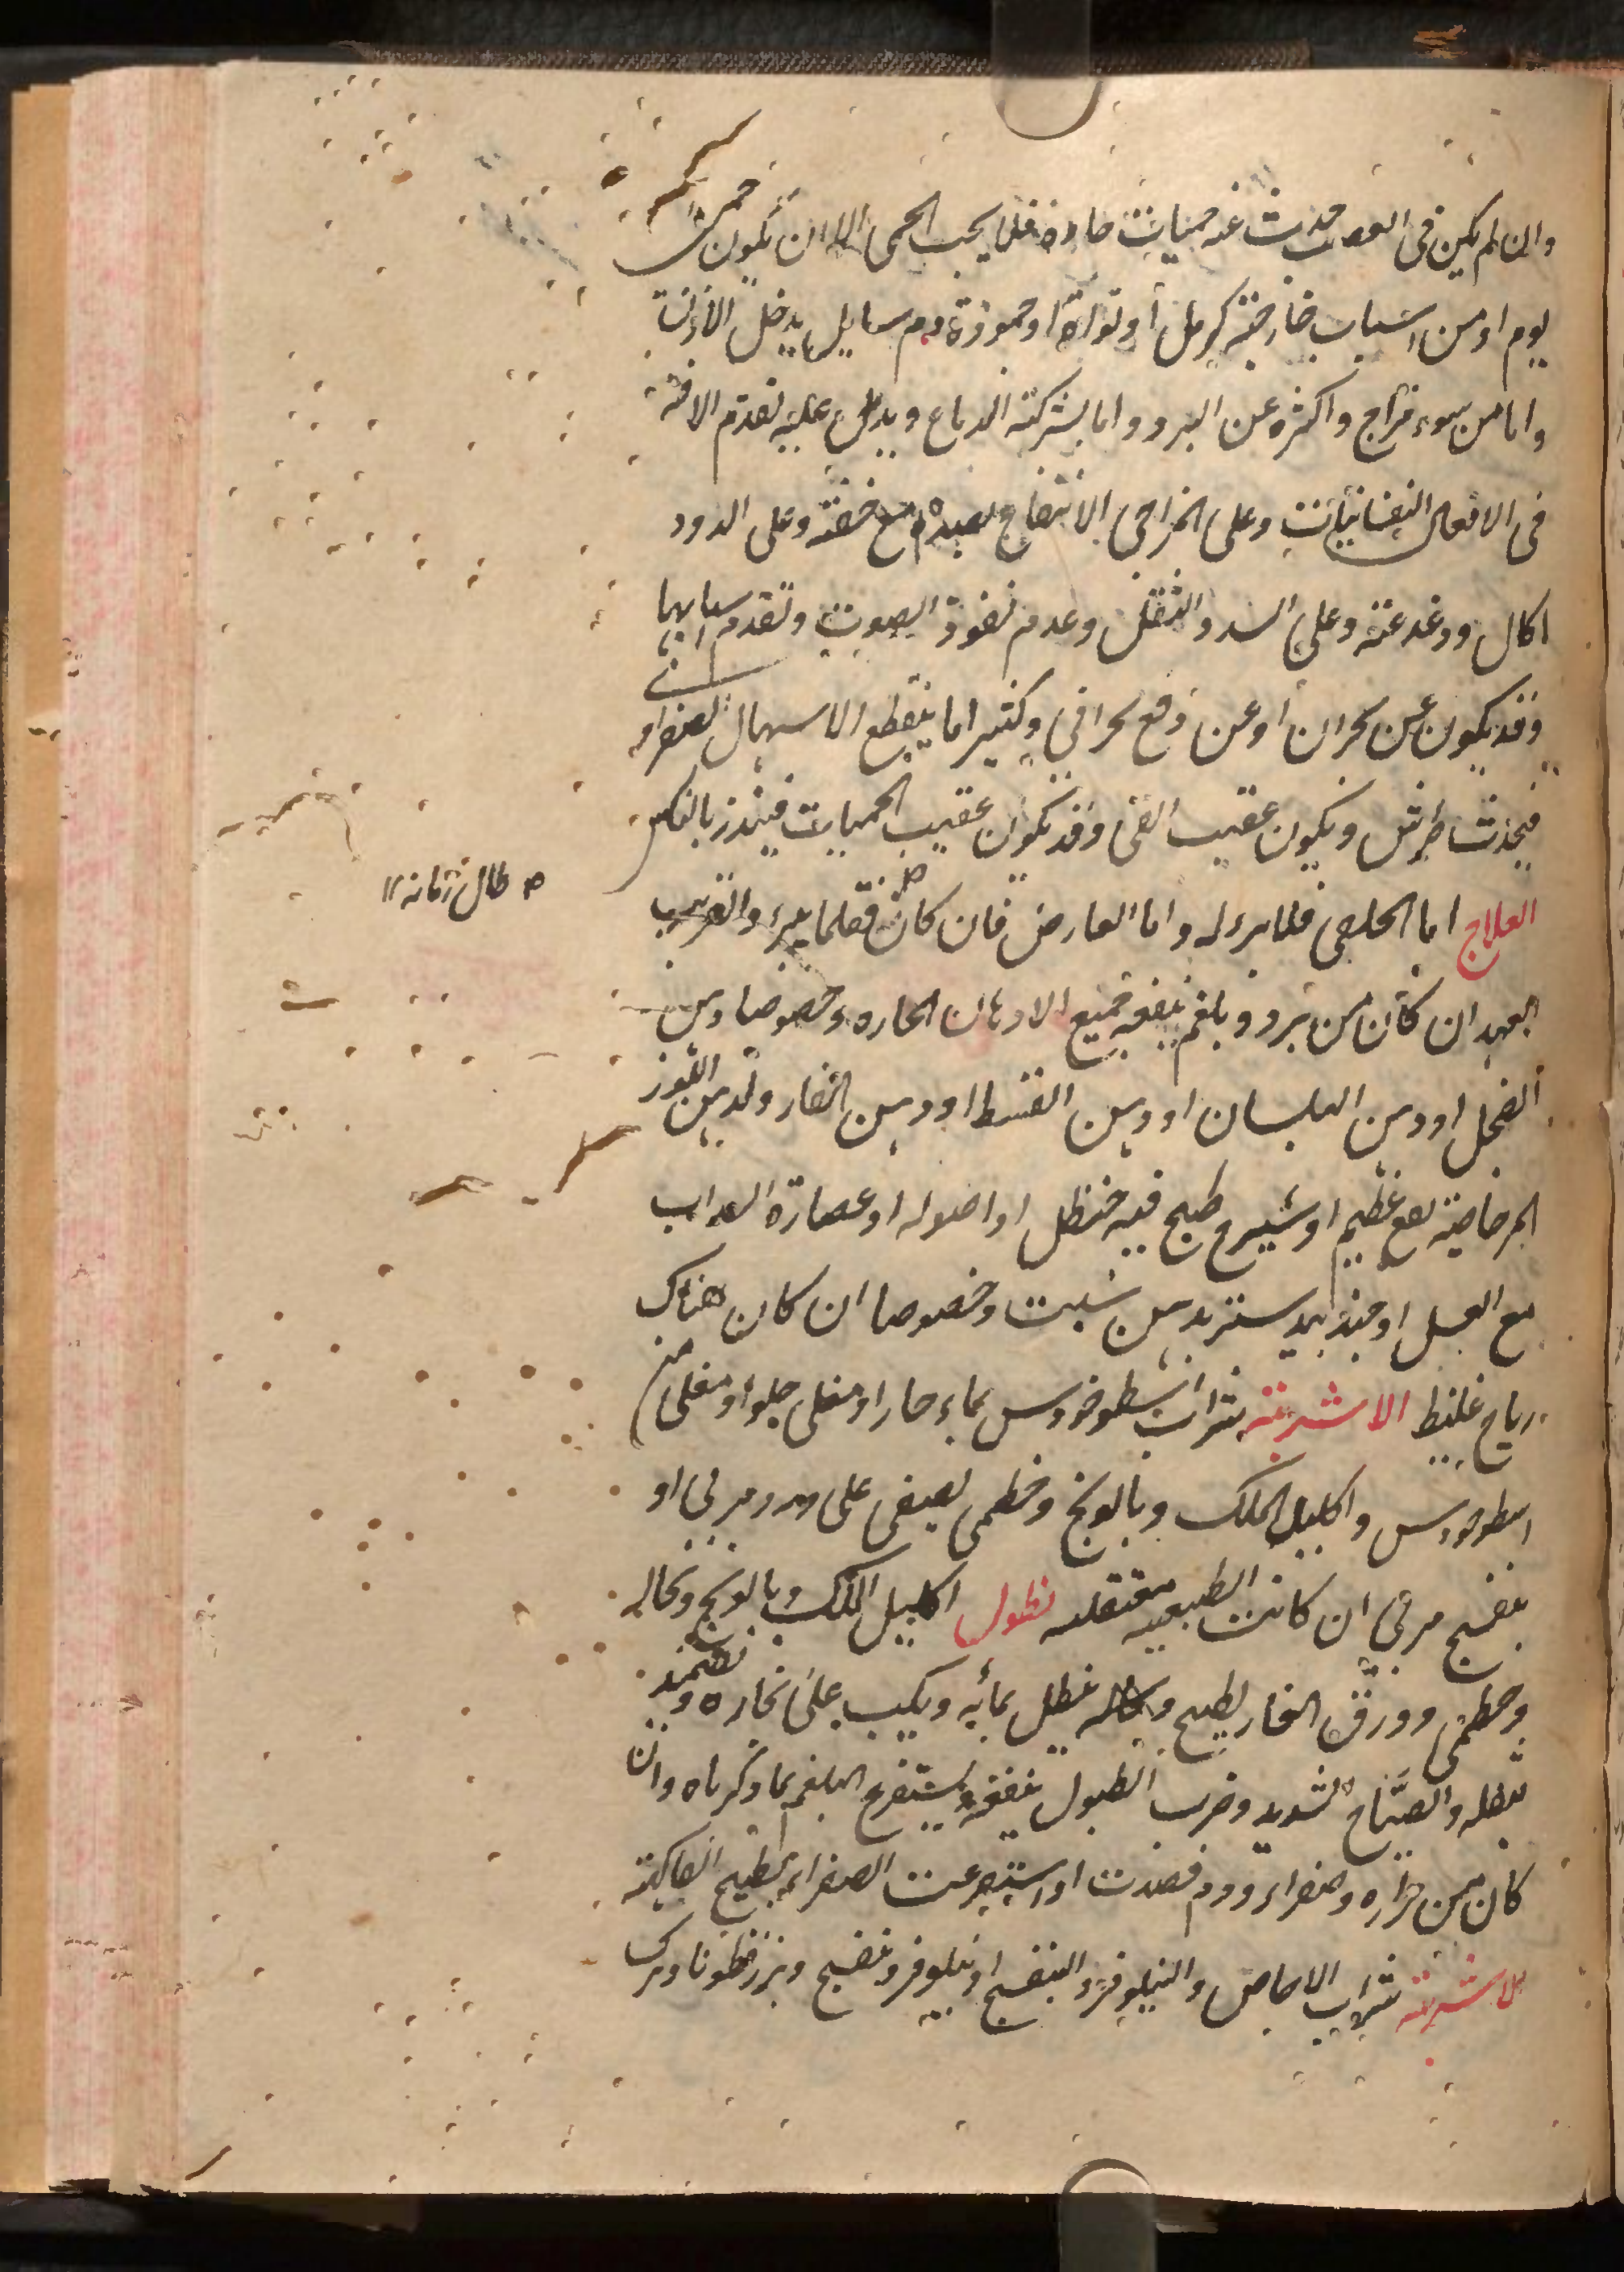 وان لم يكن فى العصب حدث عنه حميات حادة فلا يجب الحمى الا ان تكون حمى
يوم او من اسباب خارجة كرمل او نواة او جمودة دم سايل يدخل الاذن
واما من سوء مزاج واكثره عن البرد واما بشركة الدماغ ويدل عليه تقدم الافة
فى الافعال النفسانية وعلى الخراجى الانتفاخ مع خفة وعلى الدود
اكال ودغدغة وعلى السدد الثقل وعدم نفوذ الصوت وتقدم سبابها
وقد يكون عن بحران او عن دفع بحرانى وكثيرا ما ينقطع الاسهال الصفراء
فيحدث طرش ويكون عقيب القئ وقد يكون عقيب الحميات فينذر بالنكس
العلاج اما الخلقى فلا برء له واما العارض فان كان فقلما يبرء والقريب
طال زمانه
العهد ان كان من برد وبلغم ينفعه جميع الادهان الحاره وخصوصا دهن
الفجل او دهن البلسان او دهن القسط او دهن الغار ولدهن اللوز
المر خاصية نفع عظيم او شيرج طبخ فيه حنظل او اصوله او عصارة السداب
مع العسل او جندبيدستر بدهن شبت وخصوصا ان كان هناك
رياح غليظ الاشربة شراب اسطوخودس بماء حار او مغلى حلو او مغلى من
اسطوخودس واكليل الملك وبابونج وخطمى يصفى على مربى او
بنفسج مربى ان كانت الطبيعيه معتقله نطول اكليل الملك وبابونج ونخاله
وخطمى وورق الغار يطبخ ينطل بمائه ويكب على بخاره ويضمد
بثفله والصياح الشديد وضرب الطبول ينفعه ويستفرغ البلغم بما ذكرناه وان
كان من حراره وصفراء ودم فصدت او استفرغت الصفراء بطبيخ الفاكهة
الاشربة شراب الاجاص والنيلوفر والبنفسج او نيلوفر وبنفسج وبزرقطونا وترك